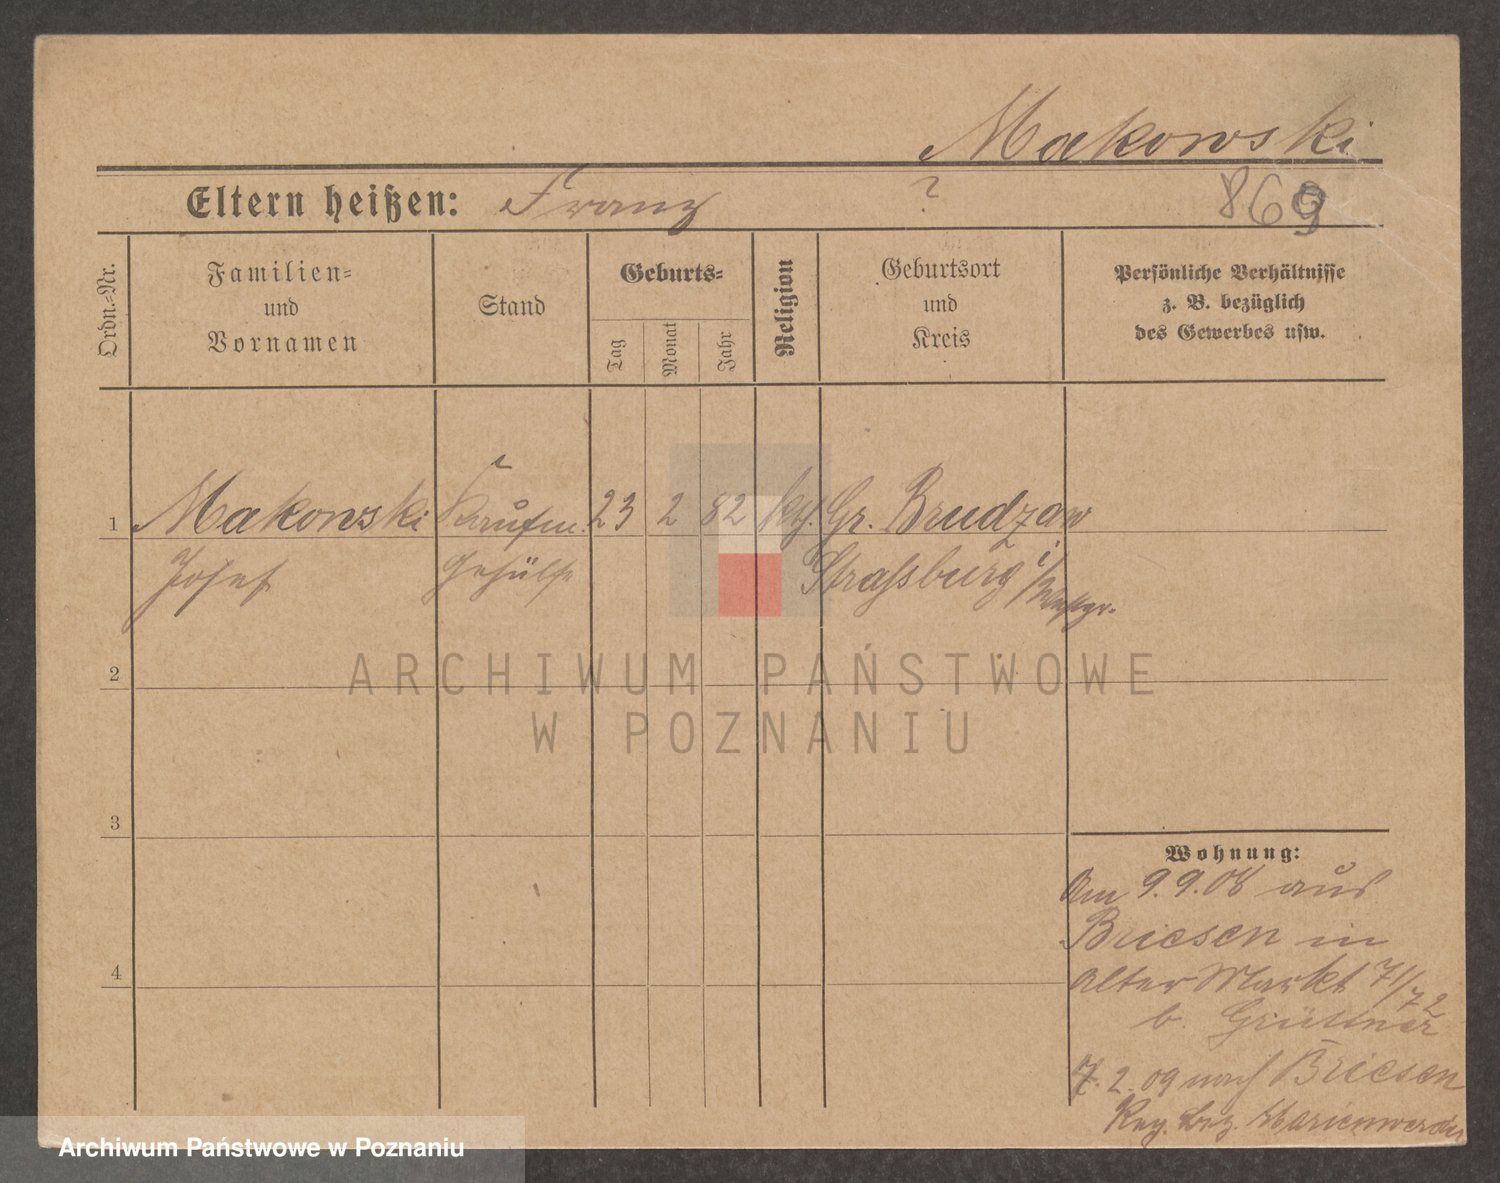 Makowski
Eltern heißen: Franz ?
869
Ordn.-Nr.
Familien-
und
Vornamen
Stand
Geburts-
Tag
Monat
Jahr
Religion
Geburtsort
und
Kreis
Persönliche Verhältnisse
z. B. bezüglich
des Gewerbes usw.
1 Makowski Kaufm. 23 2 82 Gr. Brudzaw
Josef Gehülfe Straßburg i/Westpr.
2
3
4
ARCHIWUM PAŃSTWOWE
W POZNANIU
Wohnung:
Am 9.9.08 aus
Briesen in
Alter Markt 71/72
b. Grüttner
7. 2. 09 nach Briesen
Reg. bez. Marienwerder
Archiwum Państwowe w Poznaniu